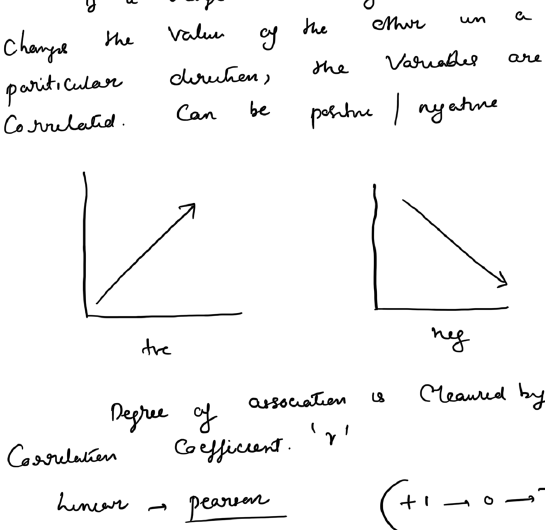 change the value of the other in a
particular direction, the variables are
Correlated. Can be positive | negative
+ve
neg
Degree of association is measured by
Correlation Coefficient. 'r'
Linear → pearson (+1 → 0 → -